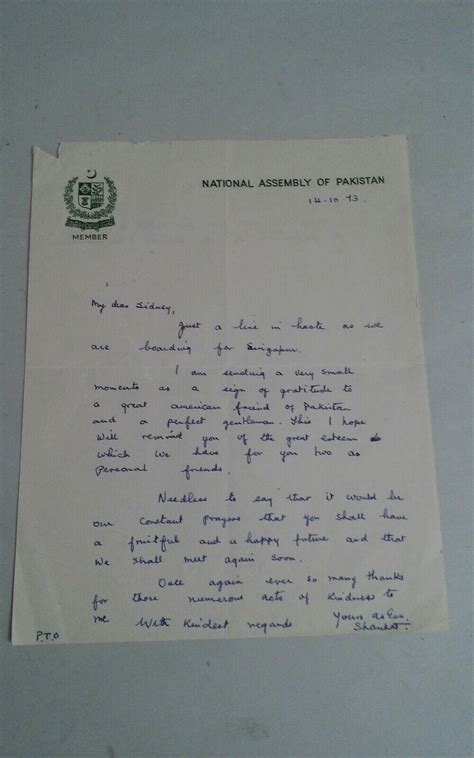 NATIONAL ASSEMBLY OF PAKISTAN
14.10.73.
MEMBER
My dear Sidney,
Just a line in haste as we
are boarding for Singapur.
I am sending a very small
momento as a sign of gratitude to
a great american friend of Pakistan
and a perfect gentleman. This I hope
will remind you of the great esteem
which we have for you two as
personal friends.
Needless to say that it would be
our constant prayers that you shall have
a fruitful and a happy future and that
we shall meet again soon.
Once again ever so many thanks
for those numerous acts of kindness to
me With kindest regards Yours as Ever
Shaukat.
P.T.O